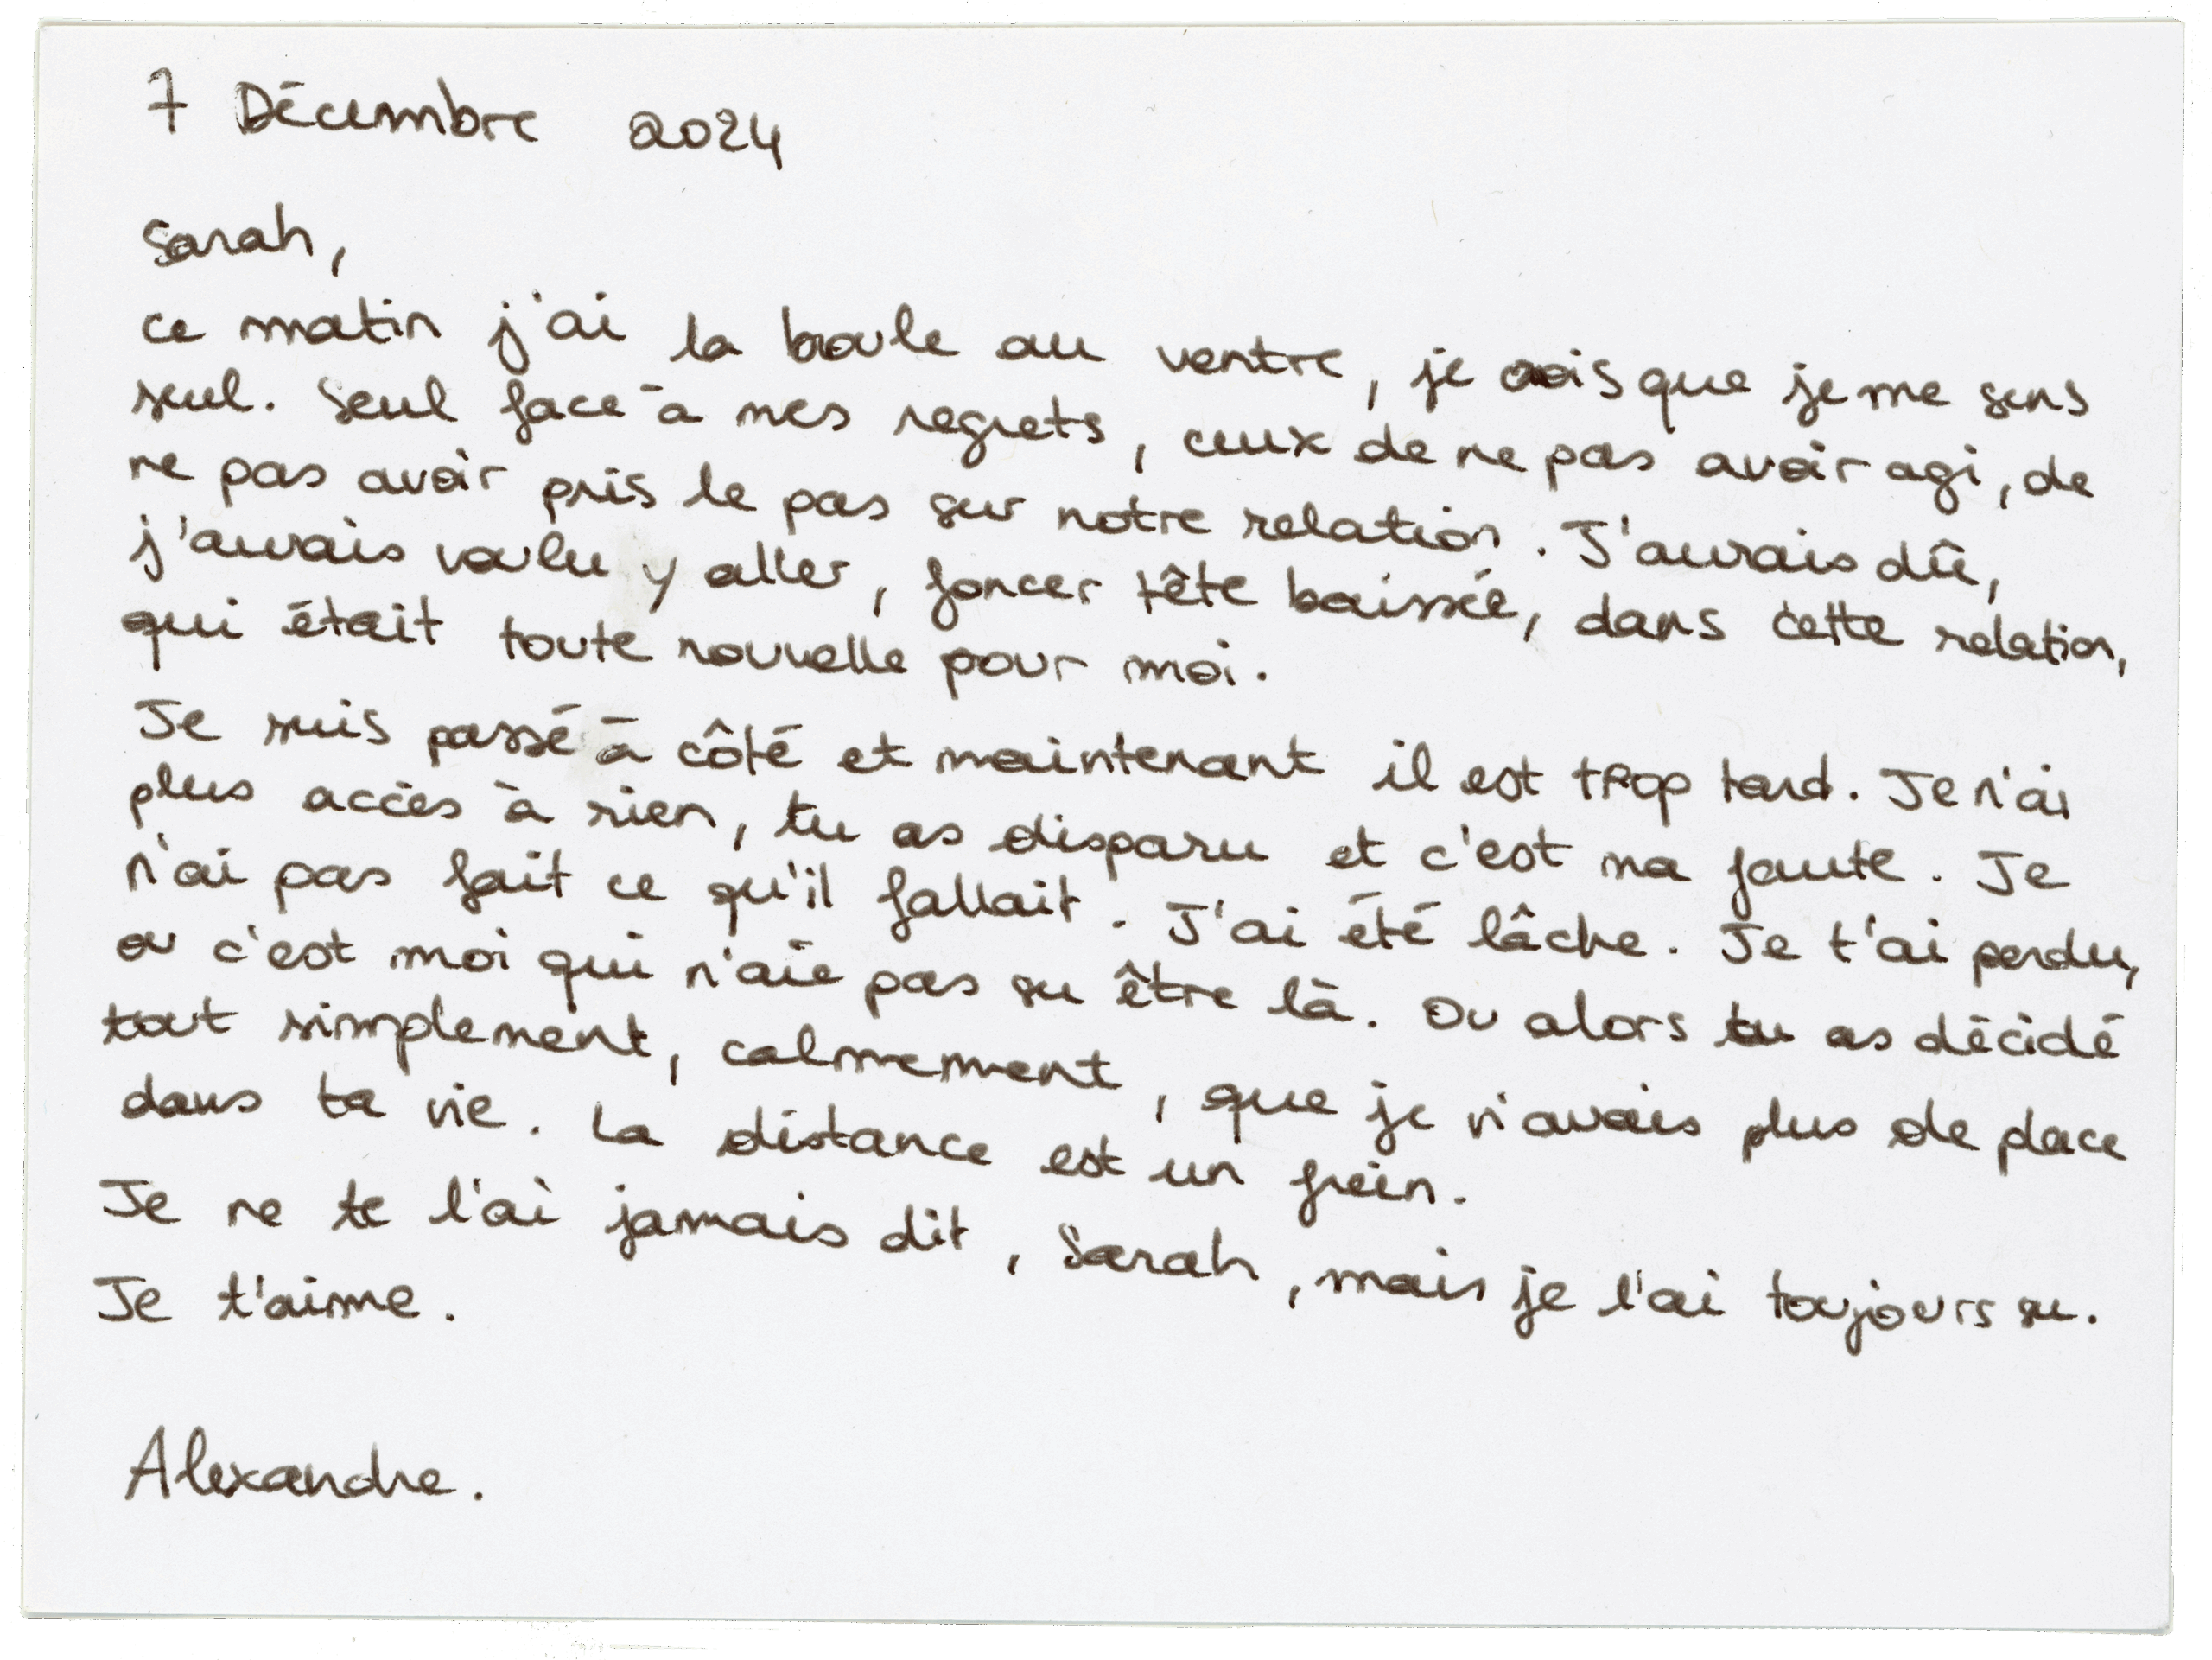 7 Décembre 2024
Sarah,
ce matin j'ai la boule au ventre, je crois que je me sens
seul. Seul face à mes regrets, ceux de ne pas avoir agi, de
ne pas avoir pris le pas sur notre relation. J'aurais dû,
j'aurais voulu y aller, foncer tête baissée, dans cette relation,
qui était toute nouvelle pour moi.
Je suis passé à côté et maintenant il est trop tard. Je n'ai
plus accès à rien, tu as disparu et c'est ma faute. Je
n'ai pas fait ce qu'il fallait. J'ai été lâche. Je t'ai perdu,
ou c'est moi qui n'aie pas su être là. Ou alors tu as décidé
tout simplement, calmement, que je n'avais plus de place
dans ta vie. La distance est un frein.
Je ne te l'ai jamais dit, Sarah, mais je l'ai toujours su.
Je t'aime.
Alexandre.